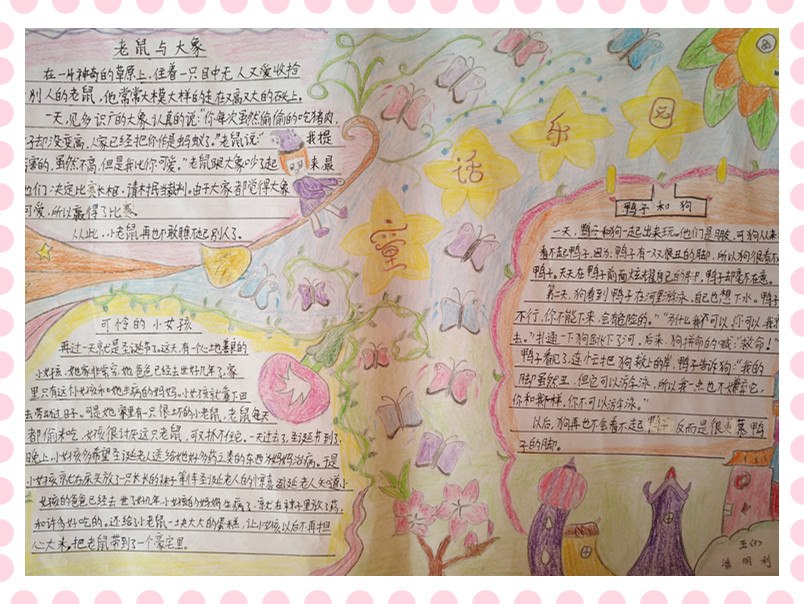 老鼠与大象
在一片神奇的草原上,住着一只目中无人又爱收拾
别人的老鼠,他常常大模大样的走在又高又大的石头上。
一天,见多识广的大象,认真的说:"你每次虽然偷偷的吃猪肉,
却没变高,人家已经把你作是蚂蚁了。"老鼠说:"我提
的,虽然不高,但是我比你可爱。"老鼠跟大象吵了起来,最
他们决定比赛长相,请村民当裁判。由于大家都觉得大象
可爱,所以赢得了比赛。
从此,小老鼠再也不敢瞧不起别人了。
童
话
乐
园
可怜的小女孩
再过一天就是圣诞节了。这天,有一个心地善良的
小女孩,她家非常穷,她爸爸已经去世好几年了,家
里只有这个女孩和她生病的妈妈。小女孩就靠
去劳动过日子。可是她家里有一只很坏的小老鼠,老鼠每天
都偷米吃,女孩很讨厌这只老鼠,可又抓不住它。一天过去了,圣诞节到了,
晚上,小女孩多希望圣诞老人送给她好多药之类的东西为妈妈治病。于是
小女孩就在床头放了一只长长的袜子等待圣诞老人的小惊喜。圣诞老人知道小
女孩的爸爸已经去世了好几年,小女孩的妈妈生病了,就在袜子里放了药,
和许多好吃的。还给小老鼠一块大大的蛋糕,让小女孩以后不再担
心大米。把老鼠带到了一个豪宅里。
鸭子和狗
一天,鸭子和狗一起出来玩。他们是朋友,可狗从来
看不起鸭子,因为,鸭子有一双很丑的脚,所以狗很看不
鸭子。天天在鸭子前面炫耀自己的脚,鸭子却毫不在意。
第二天,狗看到鸭子在河里游泳,自己也想下水。鸭子
不行,你不能下来,会有危险的。""为什么我不可以,你可以,我
去。"扑通一下狗跳下了河,后来,狗拼命的喊"救命!"
鸭子看见了,连忙把狗救上的岸,鸭子告诉狗:"我的
脚虽然丑,但它可以游泳,所以我一点也不嫌弃它,
你和我不一样,你不可以游泳。"
以后,狗再也不会看不起鸭子反而是很羡慕鸭
子的脚。
五(3)
潘明利